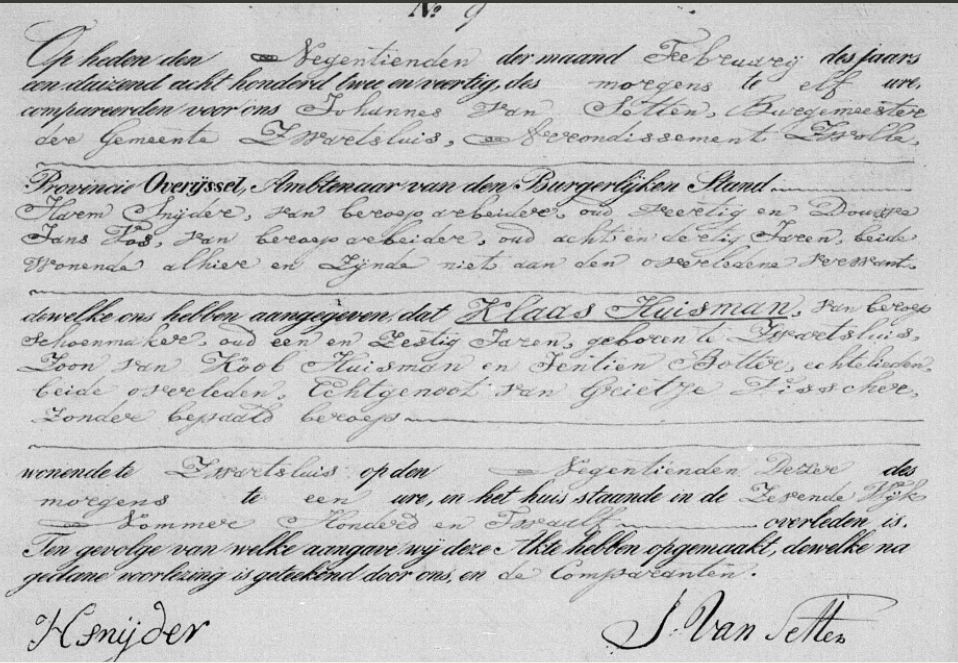 No 9
Op heden den Negentienden der maand February des jaars
een duizend acht honderd twee en veertig, des morgens te elf ure,
compareerden voor ons Johannes van Setten, Burgemeester
der Gemeente Zwartsluis, Arrondissement Zwolle,
Provincie Overijssel, Ambtenaar van den Burgerlijken Stand
Harm Snijder, van beroep arbeider, oud veertig en Douwe
Jans Vos, van beroep arbeider, oud acht en dertig Jaren, beide
Wonende alhier en Zijnde niet aan den overledene verwant.
dewelke ons hebben aangegeven, dat Klaas Huisman, van beroep
schoenmaker, oud een en Zestig Jaren, geboren te Zwartsluis,
Zoon van Roob Huisman en Jentien Botter, echtelieden,
beide overleden, Echtgenoot van Grietje Visscher,
Zonder bepaald beroep
wonende te Zwartsluis op den Negentienden Dezer des
morgens te een ure, in het huis staande in de Zevende Wijk
Nommer Honderd en Twaalf overleden is.
Ten gevolge van welke aangave wij deze Akte hebben opgemaakt, dewelke na
gedane voorlezing is geteekend door ons, en de Comparanten.
H Snijder J. Van Setten